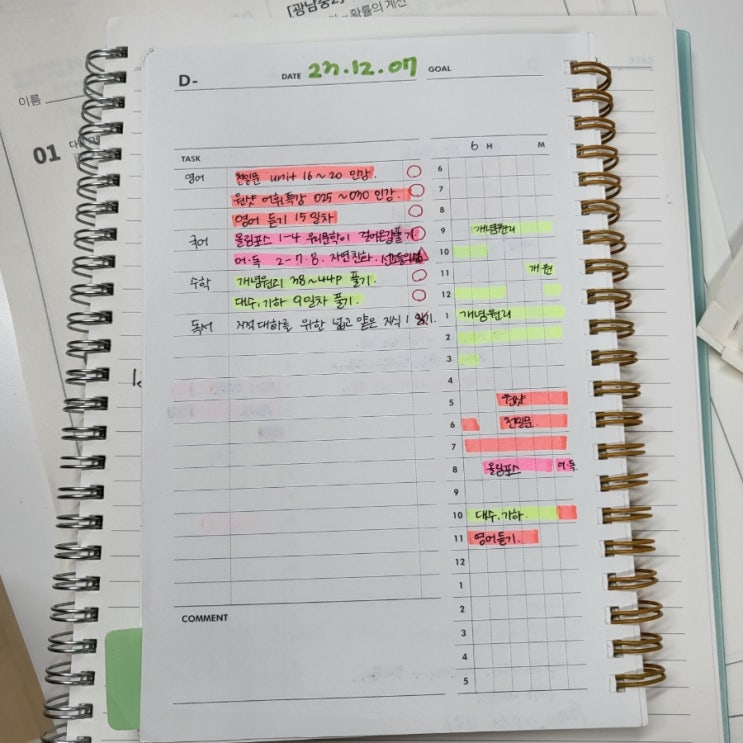 [광남중2]
확률의 계산
이름
01
D-
DATE 23.12.07 GOAL
6 H M
TASK
영어 천일문 16~20 인강.
원샷 어휘특강 025~030 인강.
영어 듣기 15일차
국어 올림포스 1-4 풀기
어.독 2-7.8. 자연친화.
수학 개념원리 38~44P 풀기.
대수.기하 9일차 풀기.
독서 지적 대화를 위한 넓고 얕은 지식 1 읽기.
6
7
8
9 개념원리
10
11 개원
12
1 개념원리
2
3
4
5 원샷
6 천일문
7
8 올림포스 어.독
9
10 대수.기하.
11 영어듣기.
12
1
2
3
4
5
COMMENT